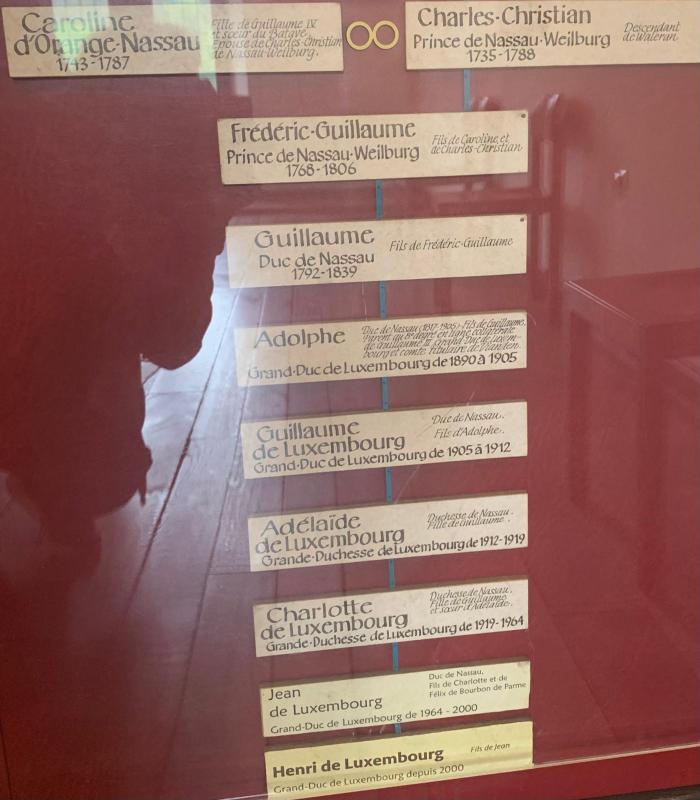 Caroline
d'Orange-Nassau
1743-1787
Fille de Guillaume IV
et sœur du Batave.
Epouse de Charles-Christian
de Nassau-Weilburg.
Charles-Christian
Prince de Nassau-Weilburg
1735-1788
Descendant
de Waleran
Frédéric-Guillaume
Prince de Nassau-Weilburg
1768-1806
Fils de Caroline et
de Charles-Christian
Guillaume
Duc de Nassau
1792-1839
Fils de Frédéric-Guillaume
Adolphe
Duc de Nassau (1817-1905). Fils de Guillaume.
Parent au 8e degré en ligne collatérale
de Guillaume III Grand Duc de Luxem-
bourg et comte titulaire de Vianden.
Grand-Duc de Luxembourg de 1890 à 1905
Guillaume
de Luxembourg
Duc de Nassau.
Fils d'Adolphe.
Grand-Duc de Luxembourg de 1905 à 1912
Adélaïde
de Luxembourg
Duchesse de Nassau.
Fille de Guillaume.
Grande-Duchesse de Luxembourg de 1912-1919
Charlotte
de Luxembourg
Duchesse de Nassau.
Fille de Guillaume
et sœur d'Adélaïde.
Grande-Duchesse de Luxembourg de 1919-1964
Jean
de Luxembourg
Duc de Nassau,
Fils de Charlotte et de
Félix de Bourbon de Parme
Grand-Duc de Luxembourg de 1964 - 2000
Henri de Luxembourg
Fils de Jean
Grand-Duc de Luxembourg depuis 2000